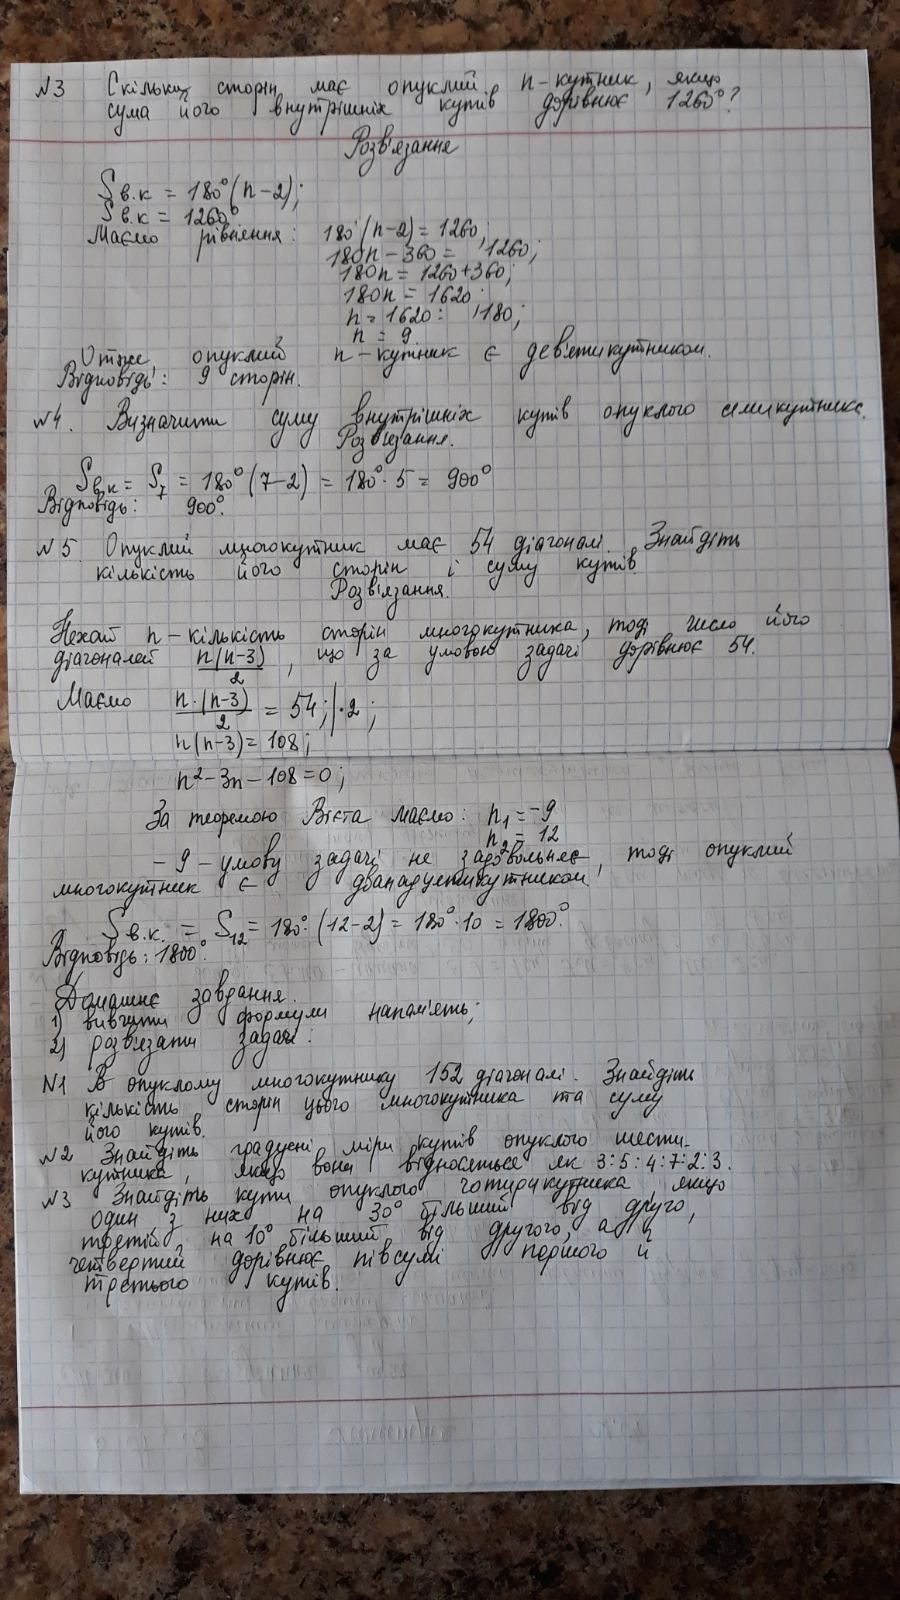 №3 Скільки сторін має опуклий n-кутник, якщо
сума його внутрішніх кутів дорівнює 1260°?
Розв'язання
Sв.к = 180°(n-2);
Sв.к = 1260°
Маємо рівняння: 180°(n-2) = 1260;
180n - 360 = 1260;
180n = 1260+360;
180n = 1620;
n = 1620 : 180;
n = 9.
Отже опуклий n-кутник є дев'ятикутником.
Відповідь: 9 сторін.
№4. Визначити суму внутрішніх кутів опуклого семикутника.
Розв'язання.
Sв.к = S7 = 180°(7-2) = 180°·5 = 900°
Відповідь: 900°.
№5. Опуклий многокутник має 54 діагоналі. Знайдіть
кількість його сторін і суму кутів.
Розв'язання.
Нехай n-кількість сторін многокутника, тоді число його
діагоналей n(n-3)/2, що за умовою задачі дорівнює 54.
Маємо n·(n-3)/2 = 54; |·2;
n(n-3) = 108;
n²-3n-108=0;
За теоремою Вієта маємо: n1 = -9
n2 = 12
-9 - умову задачі не задовольняє, тоді опуклий
многокутник є дванадцятикутником
Sв.к. = S12 = 180°·(12-2) = 180°·10 = 1800°.
Відповідь: 1800°.
Домашнє завдання.
1) вивчити формули напам'ять;
2) розв'язати задачі:
№1 В опуклому многокутнику 152 діагоналі. Знайдіть
кількість сторін цього многокутника та суму
його кутів.
№2 Знайдіть градусні міри кутів опуклого шести-
кутника, якщо вони відносяться як 3:5:4:7:2:3.
№3 Знайдіть кути опуклого чотирикутника якщо
один з них на 30° більший від друго,
третій на 10° більший від другого, а
четвертий дорівнює півсумі першого й
третього кутів.